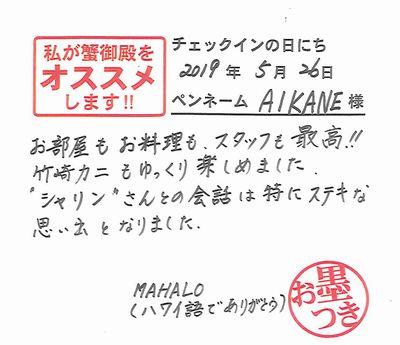 私が蟹御殿を
オススメ
します!!
チェックインの日にち
2019年 5月 26日
ペンネーム AIKANE 様
お部屋も お料理も、スタッフも 最高!!
竹崎カニも ゆっくり 楽しめました.
"シャリン"さんとの会話は 特に ステキな
思い出 と なりました.
MAHALO
(ハワイ語でありがとう)
お墨つき